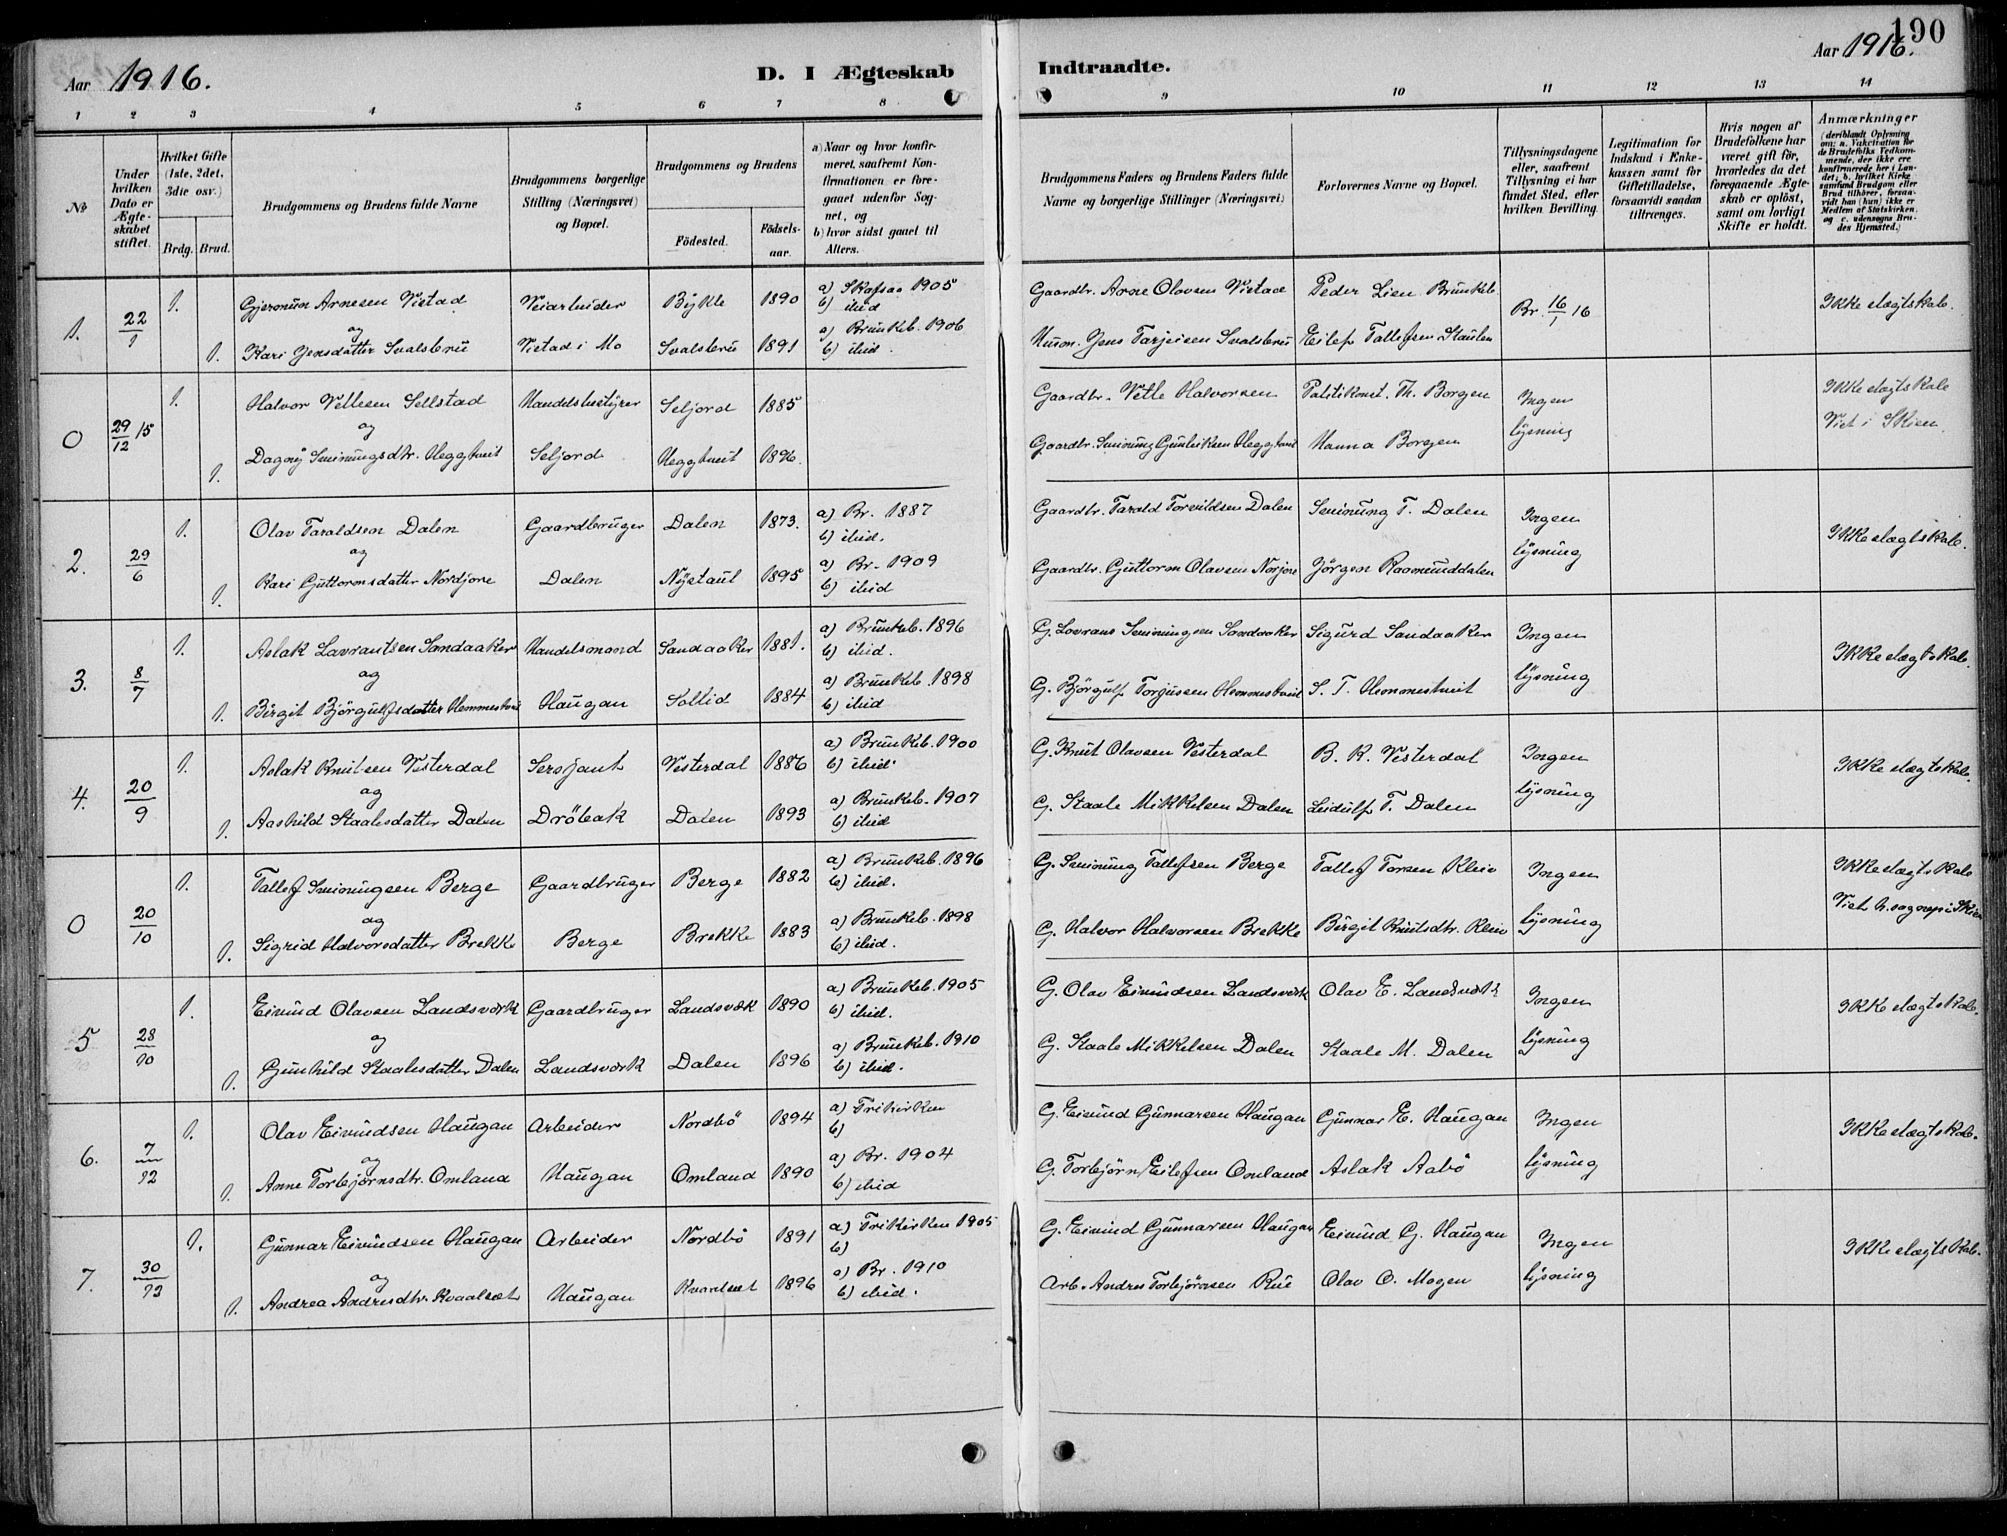 190
Aar 1916.
D. I Ægteskab Indtraadte.
Aar 1916.
1 2 3 4 5 6 7 8 9 10 11 12 13 14
No
Under hvilken Dato er Ægteskabet stiftet.
Hvilket Gifte (1ste, 2det, 3die osv.)
Brdg. Brud.
Brudgommens og Brudens fulde Navne
Brudgommens borgerlige Stilling (Næringsvei) og Bopæl.
Brudgommens og Brudens
Födested. Födselsaar.
a) Naar og hvor konfirmeret, saafremt Konfirmationen er foregaaet udenfor Sognet, og
b) hvor sidst gaaet til Alters.
Brudgommens Faders og Brudens Faders fulde Navne og borgerlige Stillinger (Næringsvei)
Forlovernes Navne og Bopæl.
Tillysningsdagene eller, saafremt Tillysning ei har fundet Sted, efter hvilken Bevilling.
Legitimation for Indskud i Enkekassen samt for Giftetilladelse, forsaavidt saadan tiltrænges.
Hvis nogen af Brudefolkene har været gift för, hvorledes da det foregaaende Ægteskab er oplöst, samt om lovligt Skifte er holdt.
Anmærkninger (deriblandt Oplysning om: a. Vakcination for de Brudefolks Vedkommende, der ikke ere konfirmerede her i Landet; b. hvilket Kirkesamfund Brudgom eller Brud tilhörer, forsaavidt han (hun) ikke er Medlem af Statskirken. og c. udensogns Brudes Hjemsted.)
1. 22/1 1. Gjermun Arnesen Vistad Veiarbeider Bykle 1890 a) Skafsaa 1905 b) ibid Gaardbr. Arne Olavsen Vistad Peder Lien Brunkeb. Br. 16/1 16 Ikke slægtskab.
og
1. Kari Jensdatter Svalsbru Vistad i Mo Svalsbru 1891 a) Brunkeb. 1906 b) ibid. Husm. Jens Tarjeisen Svalsbru Eilef Tallefsen Staulen
0 29/12 15 1. Halvor Vetlesen Sellstad Handelsbestyrer Seljord 1885 Gaardbr. Vetle Halvorsen Politikonst. Th. Borgen Ingen Ikke slægtskab
og
1. Dagny Sminingsdtr. Heggtveit Seljord Heggtveit 1896. Gaardbr. Smining Gunleiksen Heggtveit Hanna Borgen lysning Viet i Skien.
2. 29/6 1. Olav Taraldsen Dalen Gaardbruger Dalen 1873. a) Br. 1887 b) ibid. Gaardbr. Tarald Torvildsen Dalen Sminung T. Dalen Ingen Ikke slægtskab.
og
1. Kari Guttormsdatter Nordjore Dalen Nystaul 1895 a) Br. 1909 b) ibid Gaardbr. Guttorm Olavsen Norjore Jörgen Rasmunddalen lysning
3. 8/7 1. Aslak Lavrantsen Sandaaker Handelsmand Sandaaker 1881. a) Brunkeb. 1896 b) ibid. G. Lavrans Sminingsen Sandaaker Sigurd Sandaaker Ingen Ikke slægtskab.
og
1. Birgit Björgulfsdatter Hemmestveit Haugan Sollid 1884 a) Brunkeb. 1898 b) ibid G. Björgulf Torjussen Hemmestveit S. T. Hemmestveit lysning
4. 20/9 1. Aslak Knutsen Vesterdal Sersjant Vesterdal 1886 a) Brunkeb. 1900 b) ibid. G. Knut Olavsen Vesterdal B. K. Vesterdal Ingen Ikke slægtskab.
og
1. Aashild Staalesdatter Dalen Dröbak Dalen 1893 a) Brunkeb. 1907 b) ibid G. Staale Mikkelsen Dalen Leidulf T. Dalen lysning
0 20/10 1. Tallef Sminungsen Berge Gaardbruger Berge 1882 a) Brunkeb. 1896 b) ibid. G. Sminung Tallefsen Berge Tallef Torsen Kleiv Ingen Ikke slægtskab
og
1. Sigrid Halvorsdatter Brekke Berge Brekke 1883 a) Brunkeb. 1898 b) ibid. G. Halvor Halvorsen Brekke Birgit Knutsdtr. Kleiv lysning Viet h. sognepr. i Skien
5 28/10 1. Eivind Olavsen Landsværk Gaardbruger Landsværk 1890 a) Brunkeb. 1905 b) ibid. G. Olav Eivindsen Landsværk Olav E. Landsværk Ingen Ikke slægtskab.
og
1. Gunhild Staalesdatter Dalen Landsværk Dalen 1896 a) Brunkeb. 1910 b) ibid. G. Staale Mikkelsen Dalen Staale M. Dalen lysning
6. 7/12 1. Olav Eivindsen Haugan Arbeider Nordbö 1894 a) Frikirken b) G. Eivind Gunnarsen Haugan Gunnar E. Haugan Ingen Ikke slægtskab.
og
1. Anne Torbjörnsdtr. Omland Haugan Omland 1890 a) Br. 1904 b) ibid G. Torbjörn Eilefsen Omland Aslak Aabö lysning
7. 30/12 1. Gunnar Eivindsen Haugan Arbeider Nordbö 1891 a) Frikirken 1905 b) G. Eivind Gunnarsen Haugan Eivind G. Haugan Ingen Ikke slægtskab.
og
1. Andrea Andresdtr. Kvaalset Haugan Kvaalset 1896 a) Br. 1910 b) ibid. Arb. Andres Torbjörnsen Rui Olav O. Mogen lysning